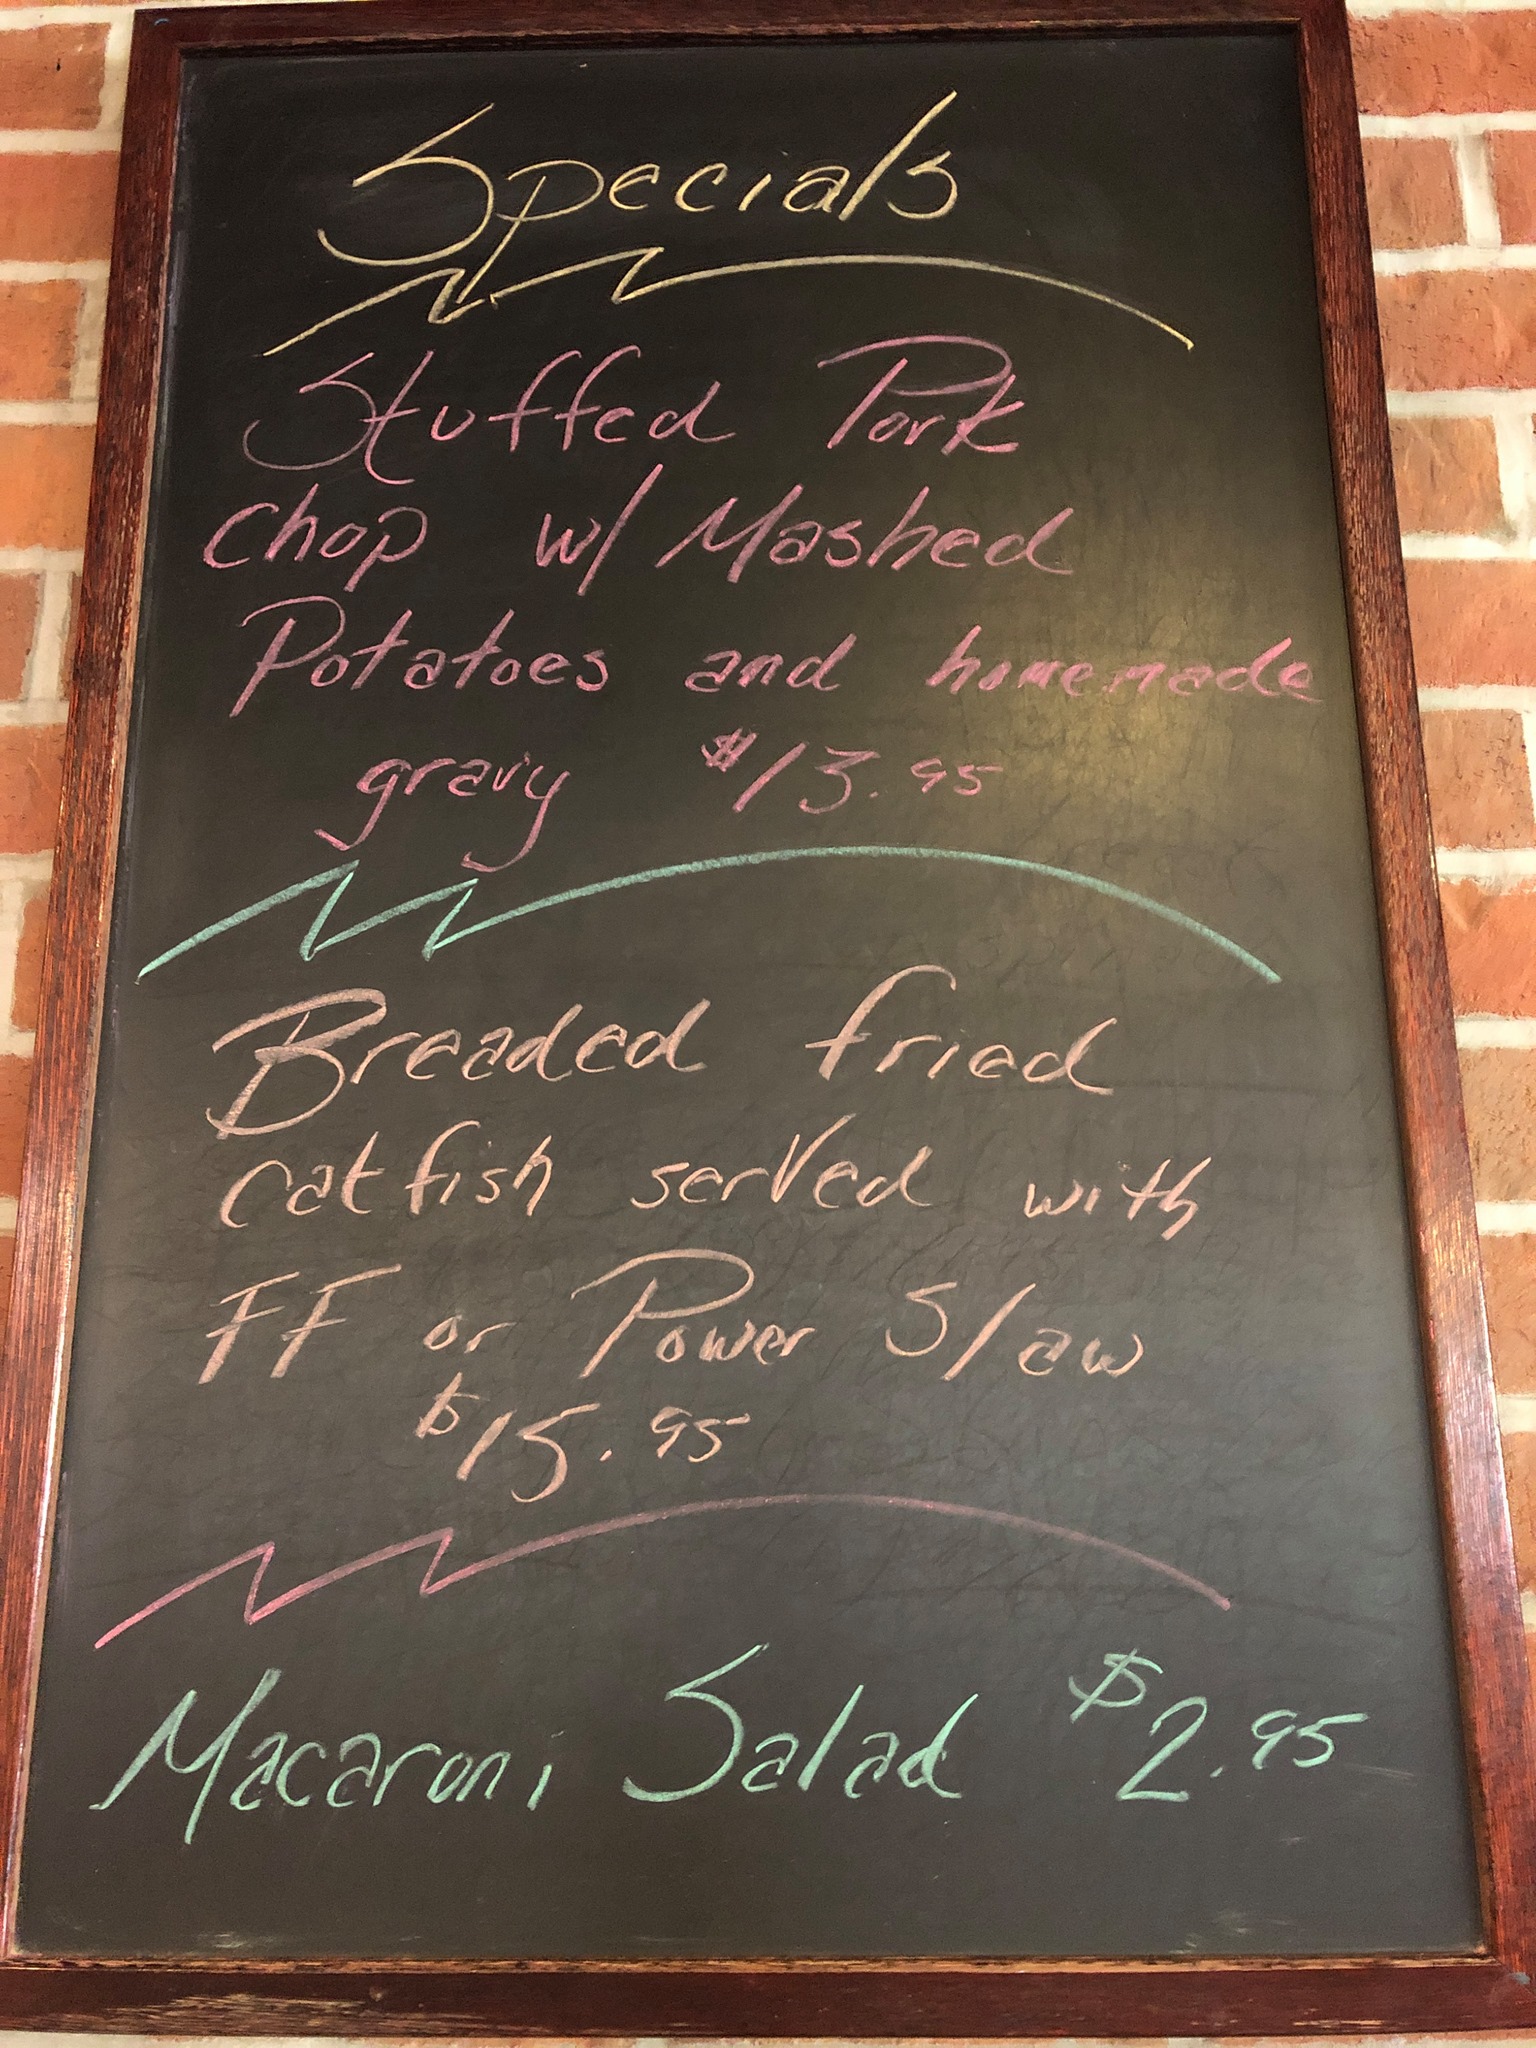 Specials
Stuffed Pork
Chop w/ Mashed
Potatoes and homemade
gravy $13.95
Breaded fried
catfish served with
FF or Power Slaw
$15.95
Macaroni Salad $2.95